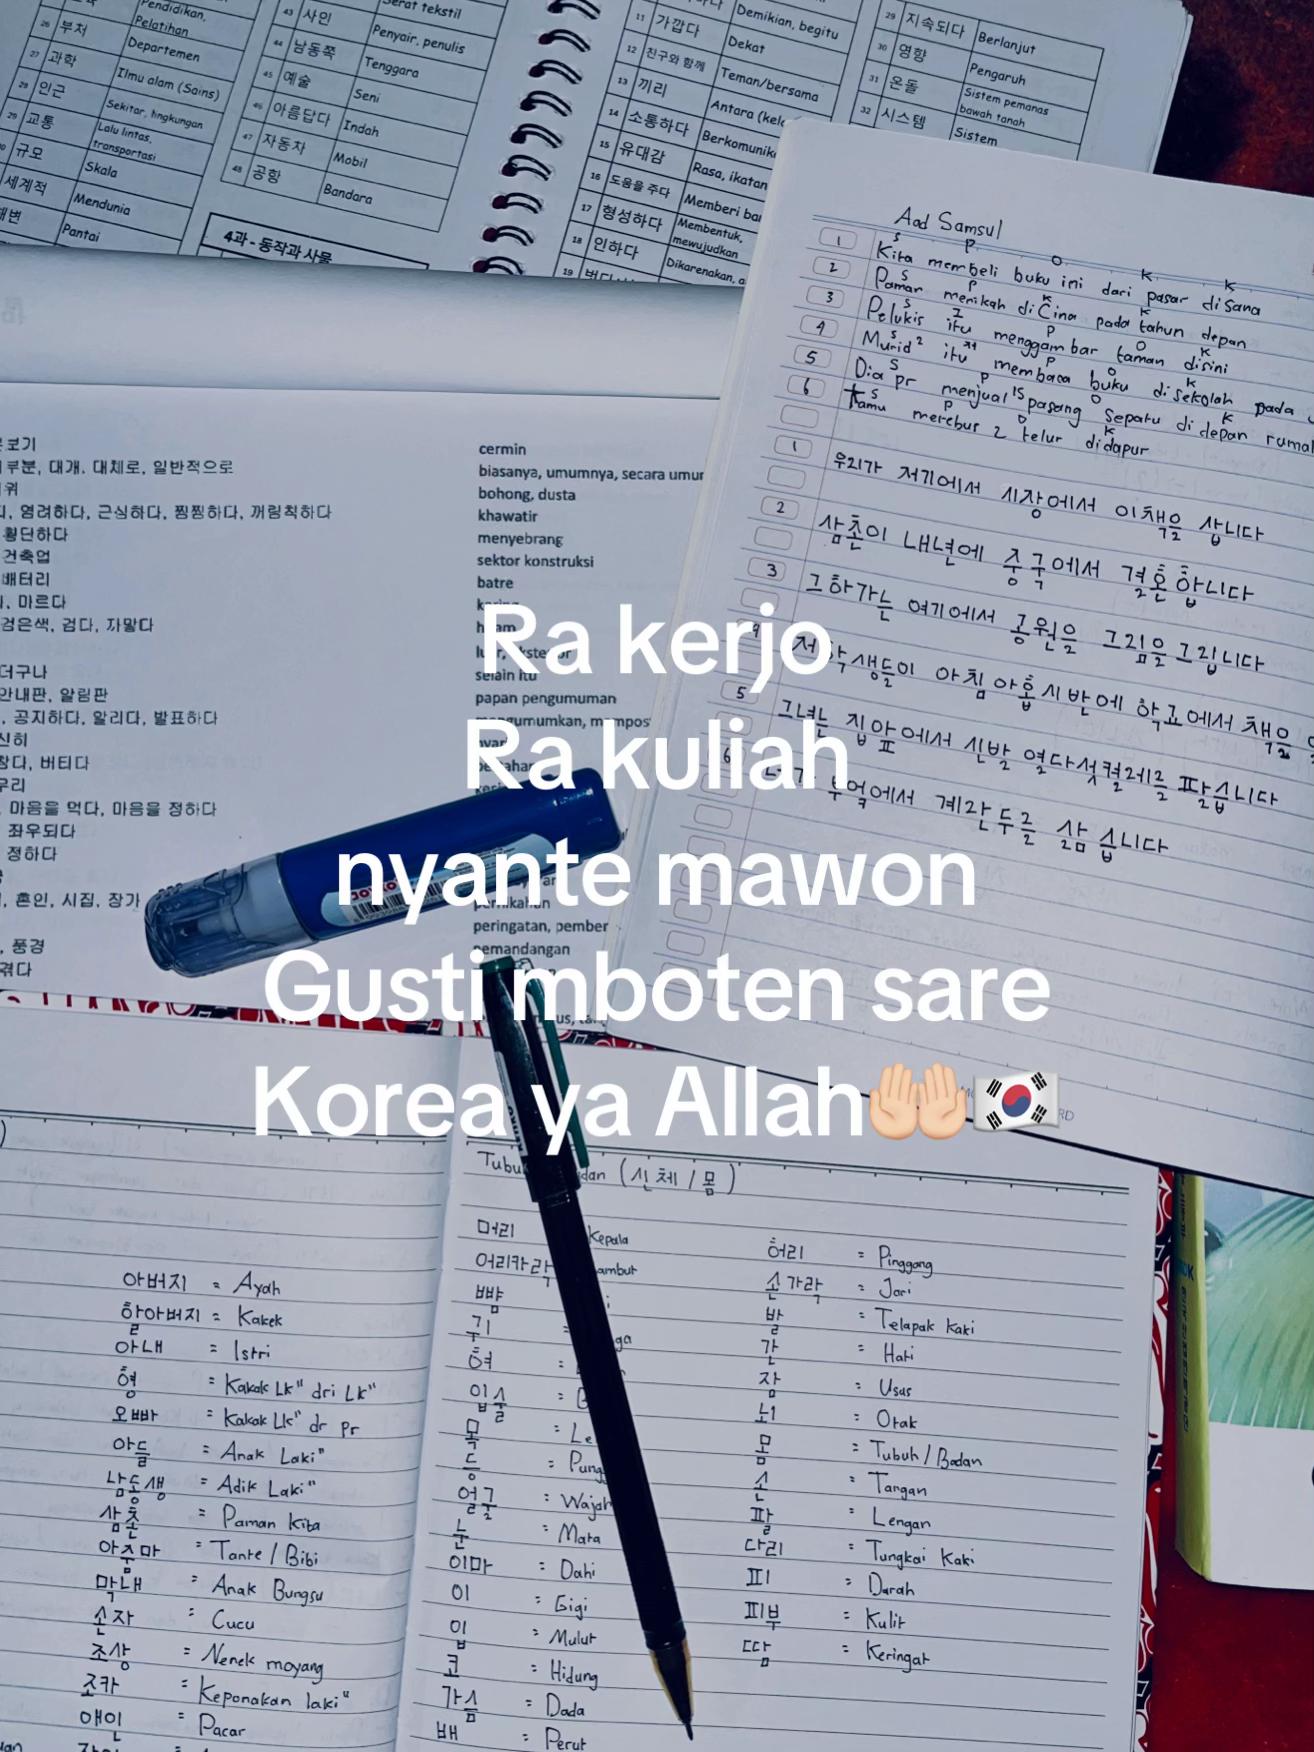 Pendidikan,
Pelatihan
26 부처 Departemen
27 과학 Ilmu alam (Sains)
28 인근 Sekitar, lingkungan
29 교통 Lalu lintas, transportasi
규모 Skala
세계적 Mendunia
Pantai
43 사인 Penyair, penulis
44 남동쪽 Tenggara
45 예술 Seni
46 아름답다 Indah
47 자동차 Mobil
48 공항 Bandara
4과 - 동작과 사물
Demikian, begitu
11 가깝다 Dekat
12 친구와 함께 Teman/bersama
13 끼리
14 소통하다
15 유대감
16 도움을 주다
17 형성하다 Membentuk, mewujudkan
18 인하다 Dikarenakan,
19
29 지속되다 Berlanjut
30 영향 Pengaruh
31 온돌 Sistem pemanas bawah tanah
32 시스템 Sistem
Aad Samsul
1 Kita membeli buku ini dari pasar disana
2 Paman menikah di Cina pada tahun depan
3 Pelukis itu menggambar taman disini
4 Murid² itu membaca buku disekolah pada
5 Dia pr menjual 15 pasang sepatu di depan rumah
6 Kamu merebus 2 telur didapur
1 우리가 저기에서 시장에서 이책을 삽니다
2 삼촌이 내년에 중국에서 결혼 합니다
3 그 화가는 여기에서 공원을 그림을 그립니다
학생들이 아침 아홉 시 반에 학교에서 책을
5 그녀는 집 앞에서 신발 열다섯 켤레를 팝습니다
부엌에서 계란 두를 삶 습니다
대개, 대체로, 일반적으로
염려하다, 근심하다, 찜찜하다, 꺼림칙하다
횡단하다
건축업
배터리
마르다
검은색, 검다, 까맣다
더구나
안내판, 알림판
공지하다, 알리다, 발표하다
버티다
마음을 먹다, 마음을 정하다
좌우되다
정하다
혼인, 시집, 장가
풍경
겪다
cermin
biasanya, umumnya, secara umum
bohong, dusta
khawatir
menyebrang
sektor konstruksi
batre
selain itu
papan pengumuman
pernikahan
peringatan,
pemandangan
Ra kerjo
Ra kuliah
nyante mawon
Gusti mboten sare
Korea ya Allah🤲🏻🇰🇷
JOYKO
아버지 = Ayah
할아버지 = Kakek
아내 = Istri
형 = Kakak Lk" dri Lk"
오빠 = Kakak Lk" dr pr
아들 = Anak Laki"
남동생 = Adik Laki"
삼촌 = Paman Kita
아주마 = Tante / Bibi
막내 = Anak Bungsu
손자 = Cucu
조상 = Nenek moyang
조카 = Keponakan laki"
애인 = Pacar
(신체 / 몸)
머리 Kepala
어리카락
뺨
귀
혀
입술
목
등
얼굴 = Wajah
눈 = Mata
이마 = Dahi
이 = Gigi
입 = Mulut
코 = Hidung
가슴 = Dada
배 = Perut
허리 = Pinggang
손가락 = Jari
발 = Telapak kaki
간 = Hati
장 = Usus
뇌 = Otak
몸 = Tubuh / Badan
손 = Tangan
팔 = Lengan
다리 = Tungkai Kaki
피 = Darah
피부 = Kulit
땀 = Keringat